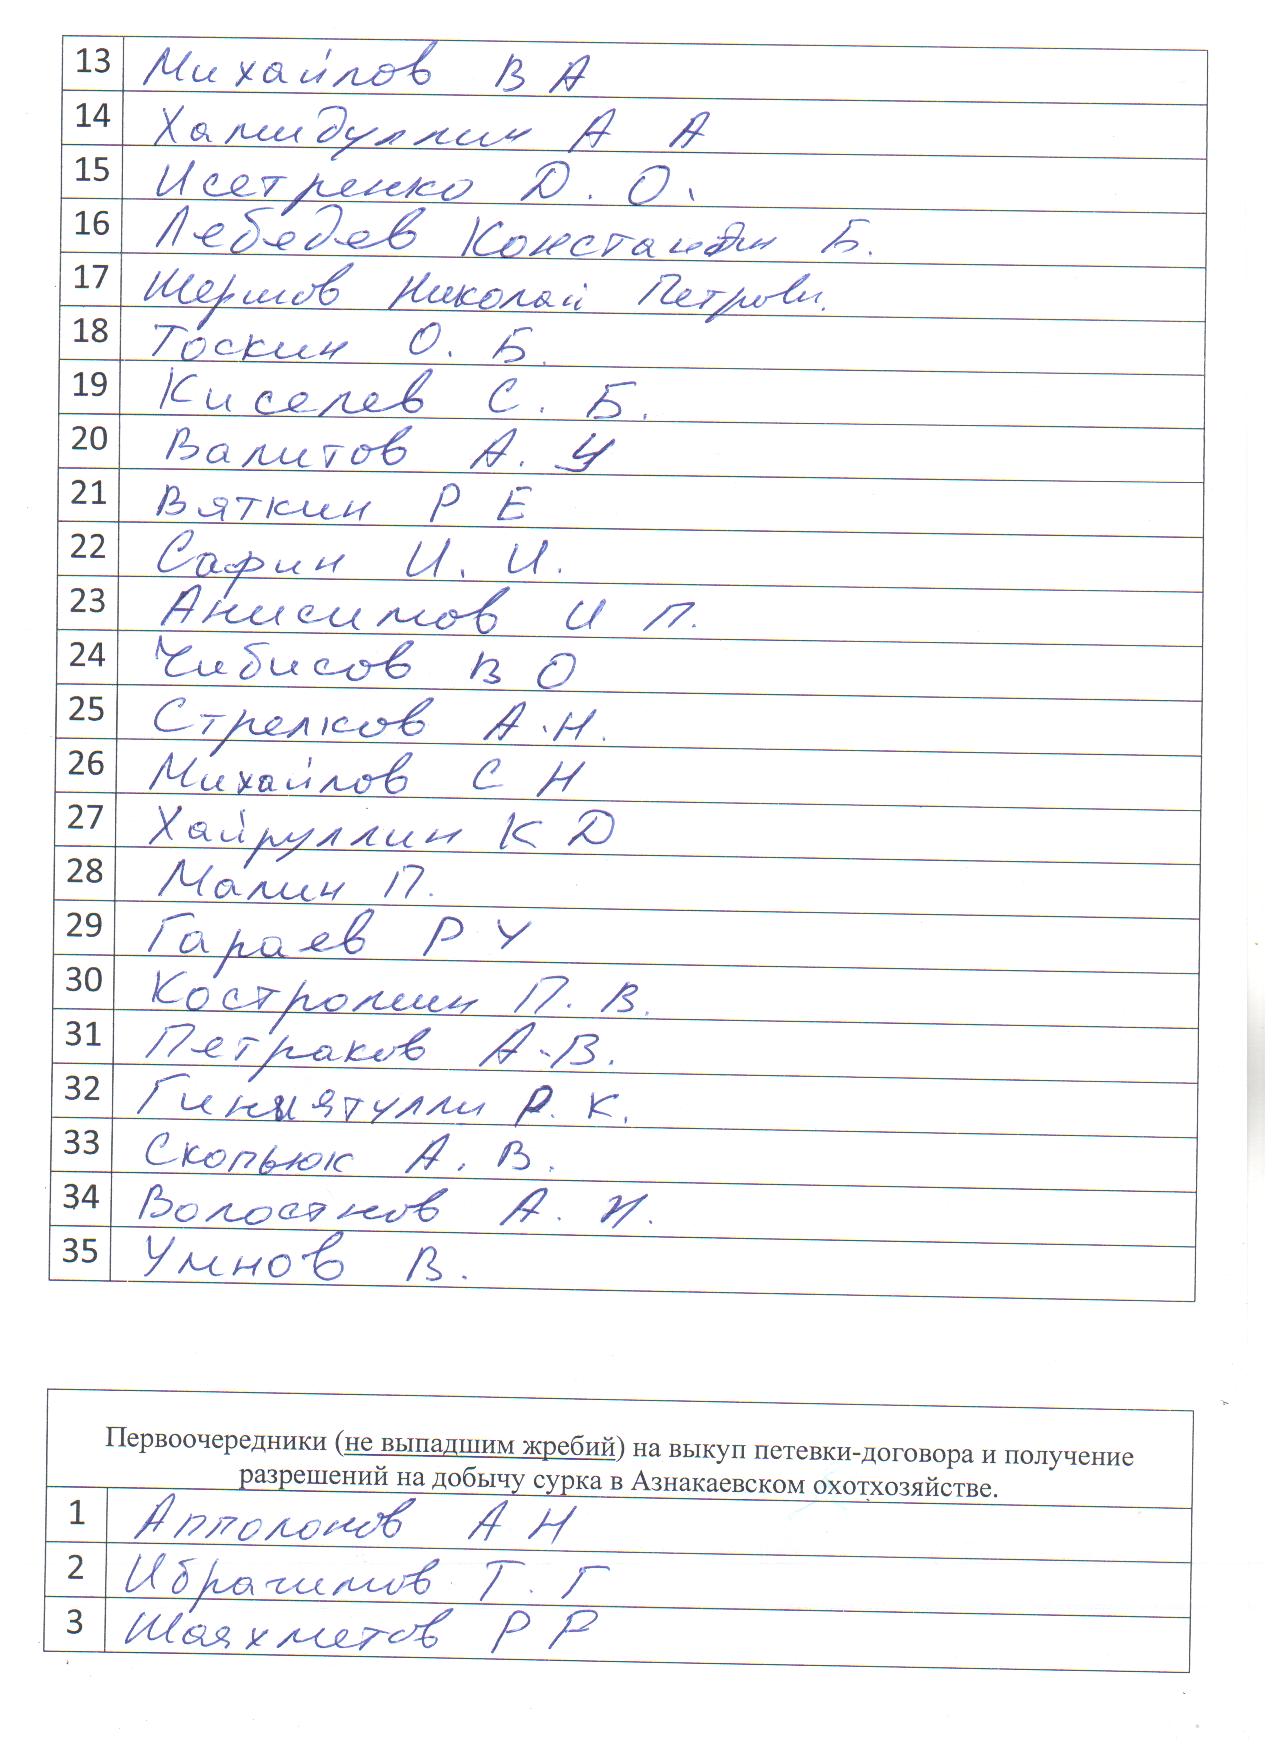 13 Михайлов В А
14 Хамидуллин А А
15 Исетренко Д. О.
16 Лебедев Константин Б.
17 Шершов Николай Петрович.
18 Тоскин О. Б.
19 Киселев С. Б.
20 Валитов А. У
21 Вяткин Р Е
22 Сафин И. И.
23 Анисимов И П.
24 Чибисов В О
25 Стрелков А.Н.
26 Михайлов С Н
27 Хайруллин К Д
28 Малин П.
29 Гараев Р У
30 Костромин П. В.
31 Петраков А.В.
32 Гиниятулли Р. К.
33 Скопьюк А. В.
34 Волостнов А. И.
35 Умнов В.
Первоочередники (не выпадшим жребий) на выкуп петевки-договора и получение
разрешений на добычу сурка в Азнакаевском охотхозяйстве.
1 Апполонов А Н
2 Ибрагимов Т. Г
3 Шаяхметов Р Р